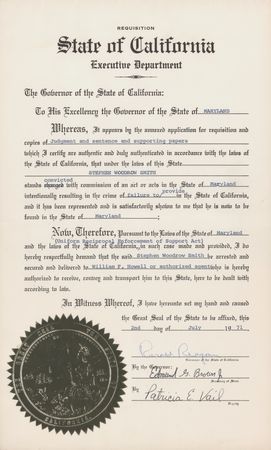 REQUISITION
State of California
Executive Department
The Governor of the State of California:
To His Excellency the Governor of the State of MARYLAND
Whereas, It appears by the annexed application for requisition and
copies of Judgment and sentence and supporting papers
which I certify are authentic and duly authenticated in accordance with the laws of
the State of California, that under the laws of this State
STEPHEN WOODROW SMITH
convicted
stands charged with commission of an act or acts in the State of Maryland
provide
intentionally resulting in the crime of failure to/ in this State,
and it has been represented and is satisfactorily shown to me that he is now to be
found in the State of Maryland ;
Now, Therefore, Pursuant to the Laws of the State of Maryland
(Uniform Reciprocal Enforcement of Support Act)
and the laws of the State of California, in such case made and provided, I do
hereby respectfully demand that the said Stephen Woodrow Smith be arrested
secured and delivered to William F. Howell or authorized agent who is hereby
authorized to receive, convey and transport him to this State, here to be dealt with
according to law.
In Witness Whereof, I have hereunto set my hand and caused
the Great Seal of the State to be affixed, this
2nd day of July 1971
Ronald Reagan
Governor of the State of California
By the Governor:
Edmund G. Brown Jr.
Secretary of State
By Patricia E. Vail
Deputy
CALIFORNIA